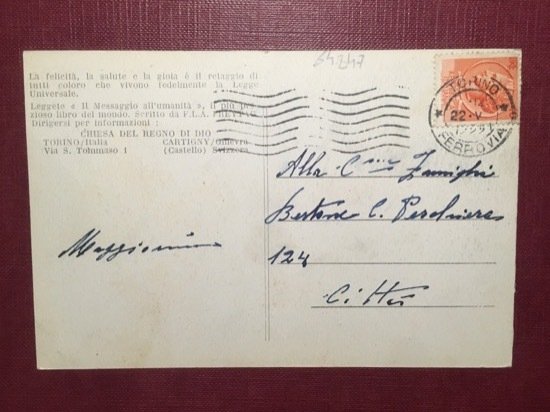 64747
La felicità, la salute e la gioia è il retaggio di
tutti coloro che vivono fedelmente la Legge
Universale.
Leggete « Il Messaggio all'umanità », il più pre-
zioso libro del mondo. Scritto da F.L.A. FREYTAG
Dirigersi per informazioni :
CHIESA DEL REGNO DI DIO
TORINO/Italia CARTIGNY/Ginevra
Via S. Tommaso 1 (Castello) Svizzera
TORINO
22·V
FERROVIA
Alla
Famiglia
Bertone C. Peschiera
124
Città